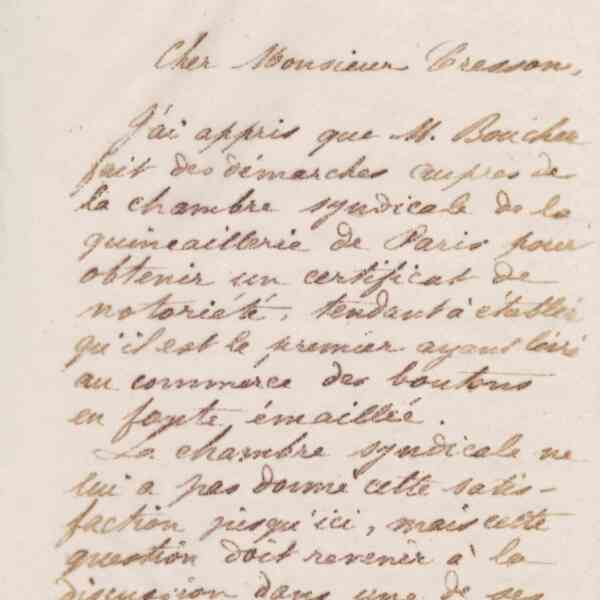 Cher Monsieur Cresson,
J'ai appris que M. Boucher
fait des démarches aupres de
la chambre syndicale de la
quincaillerie de Paris pour
obtenir un certificat de
notoriété, tendant à établir
qu'il est le premier ayant livré
au commerce des boutons
en fonte émaillée.
La chambre syndicale ne
lui a pas donné cette satis-
faction jusqu'ici, mais cette
question doit revenir à la
discussion dans une de ses